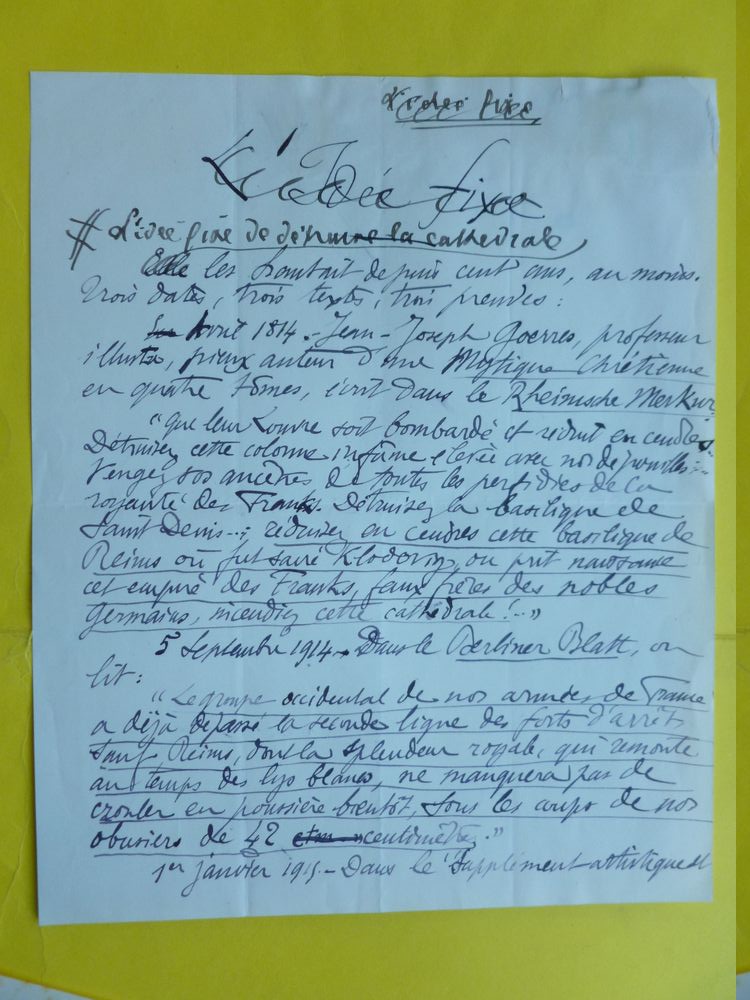 L'idée fixe
L'Idée fixe
# L'idée fixe de détruire la cathédrale
Elle les hantait depuis cent ans, au moins.
Trois dates, trois textes, trois preuves :
Avril 1814. - Jean-Joseph Goerres, professeur
illustre, pieux auteur d'une Mystique Chrétienne
en quatre tomes, écrit dans le Rheinische Merkur,
"Que leur Louvre soit bombardé et réduit en cendres.
Détruisez cette colonne infâme élevée avec nos dépouilles...
Vengez vos ancêtres de toutes les perfidies de la
royauté des Franks. Détruisez la basilique de
Saint Denis...; réduisez en cendres cette basilique de
Reims où fut sacré Klodovig, où prit naissance
cet empire des Franks, faux frères des nobles
Germains, incendiez cette cathédrale !..."
5 Septembre 1914. - Dans le Berliner Blatt, on
lit :
"Le groupe occidental de nos armées de France
a déjà dépassé la seconde ligne des forts d'arrêt
sauf Reims, dont la splendeur royale, qui remonte
au temps des lys blancs, ne manquera pas de
crouler en poussière bientôt, sous les coups de nos
obusiers de 42 centimètres."
1er janvier 1915. - Dans le "Supplément artistique et